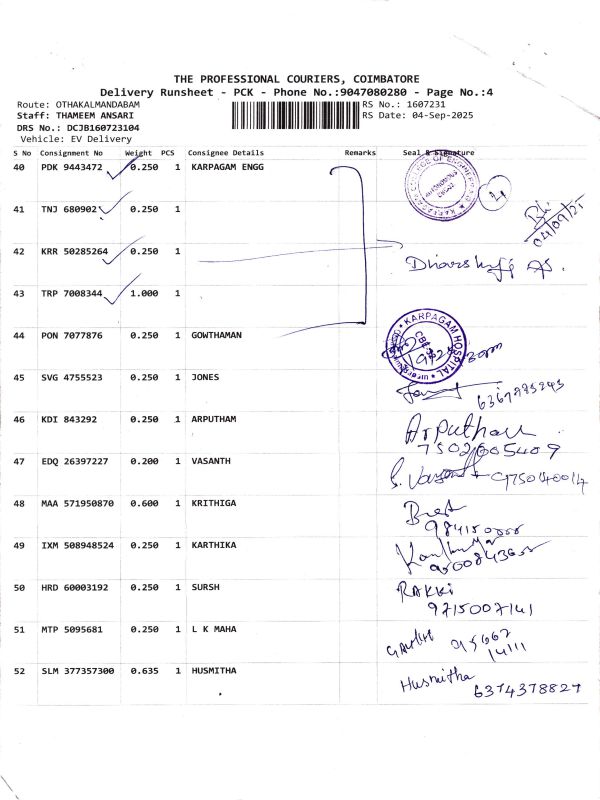 THE PROFESSIONAL COURIERS, COIMBATORE
Delivery Runsheet - PCK - Phone No.:9047080280 - Page No.:4
Route: OTHAKALMANDABAM RS No.: 1607231
Staff: THAMEEM ANSARI RS Date: 04-Sep-2025
DRS No.: DCJB160723104
Vehicle: EV Delivery
S No Consignment No Weight PCS Consignee Details Remarks Seal & Signature
40 PDK 9443472 0.250 1 KARPAGAM ENGG
41 TNJ 680902 0.250 1
04/09/25
42 KRR 50285264 0.250 1
43 TRP 7008344 1.000 1
44 PON 7077876 0.250 1 GOWTHAMAN
KARPAGAM HOSPITAL
45 SVG 4755523 0.250 1 JONES
46 KDI 843292 0.250 1 ARPUTHAM Arputham
7502605409
47 EDQ 26397227 0.200 1 VASANTH S. Vasanth
48 MAA 571950870 0.600 1 KRITHIGA
49 IXM 508948524 0.250 1 KARTHIKA
50 HRD 60003192 0.250 1 SURSH RAKKI
9715007141
51 MTP 5095681 0.250 1 L K MAHA
52 SLM 377357300 0.635 1 HUSMITHA Husmitha
6374378827